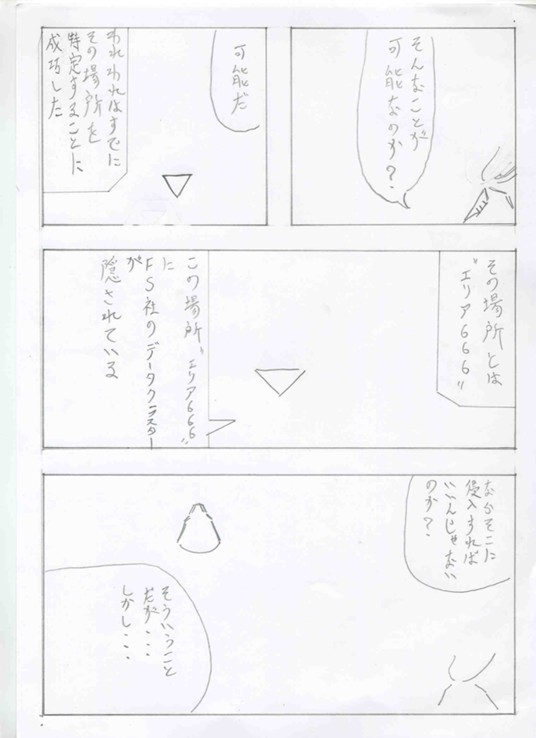 そんなことが
可能なのか?
可能だ
われわれはすでに
その場所を
特定することに
成功した
その場所とは
"エリア666"
この場所"エリア666"
に
FS社のデータクラスター
が
隠されている
なかそこに
侵入すれば
いいんじゃない
のか?
そういうこと
だが・・・
しかし・・・